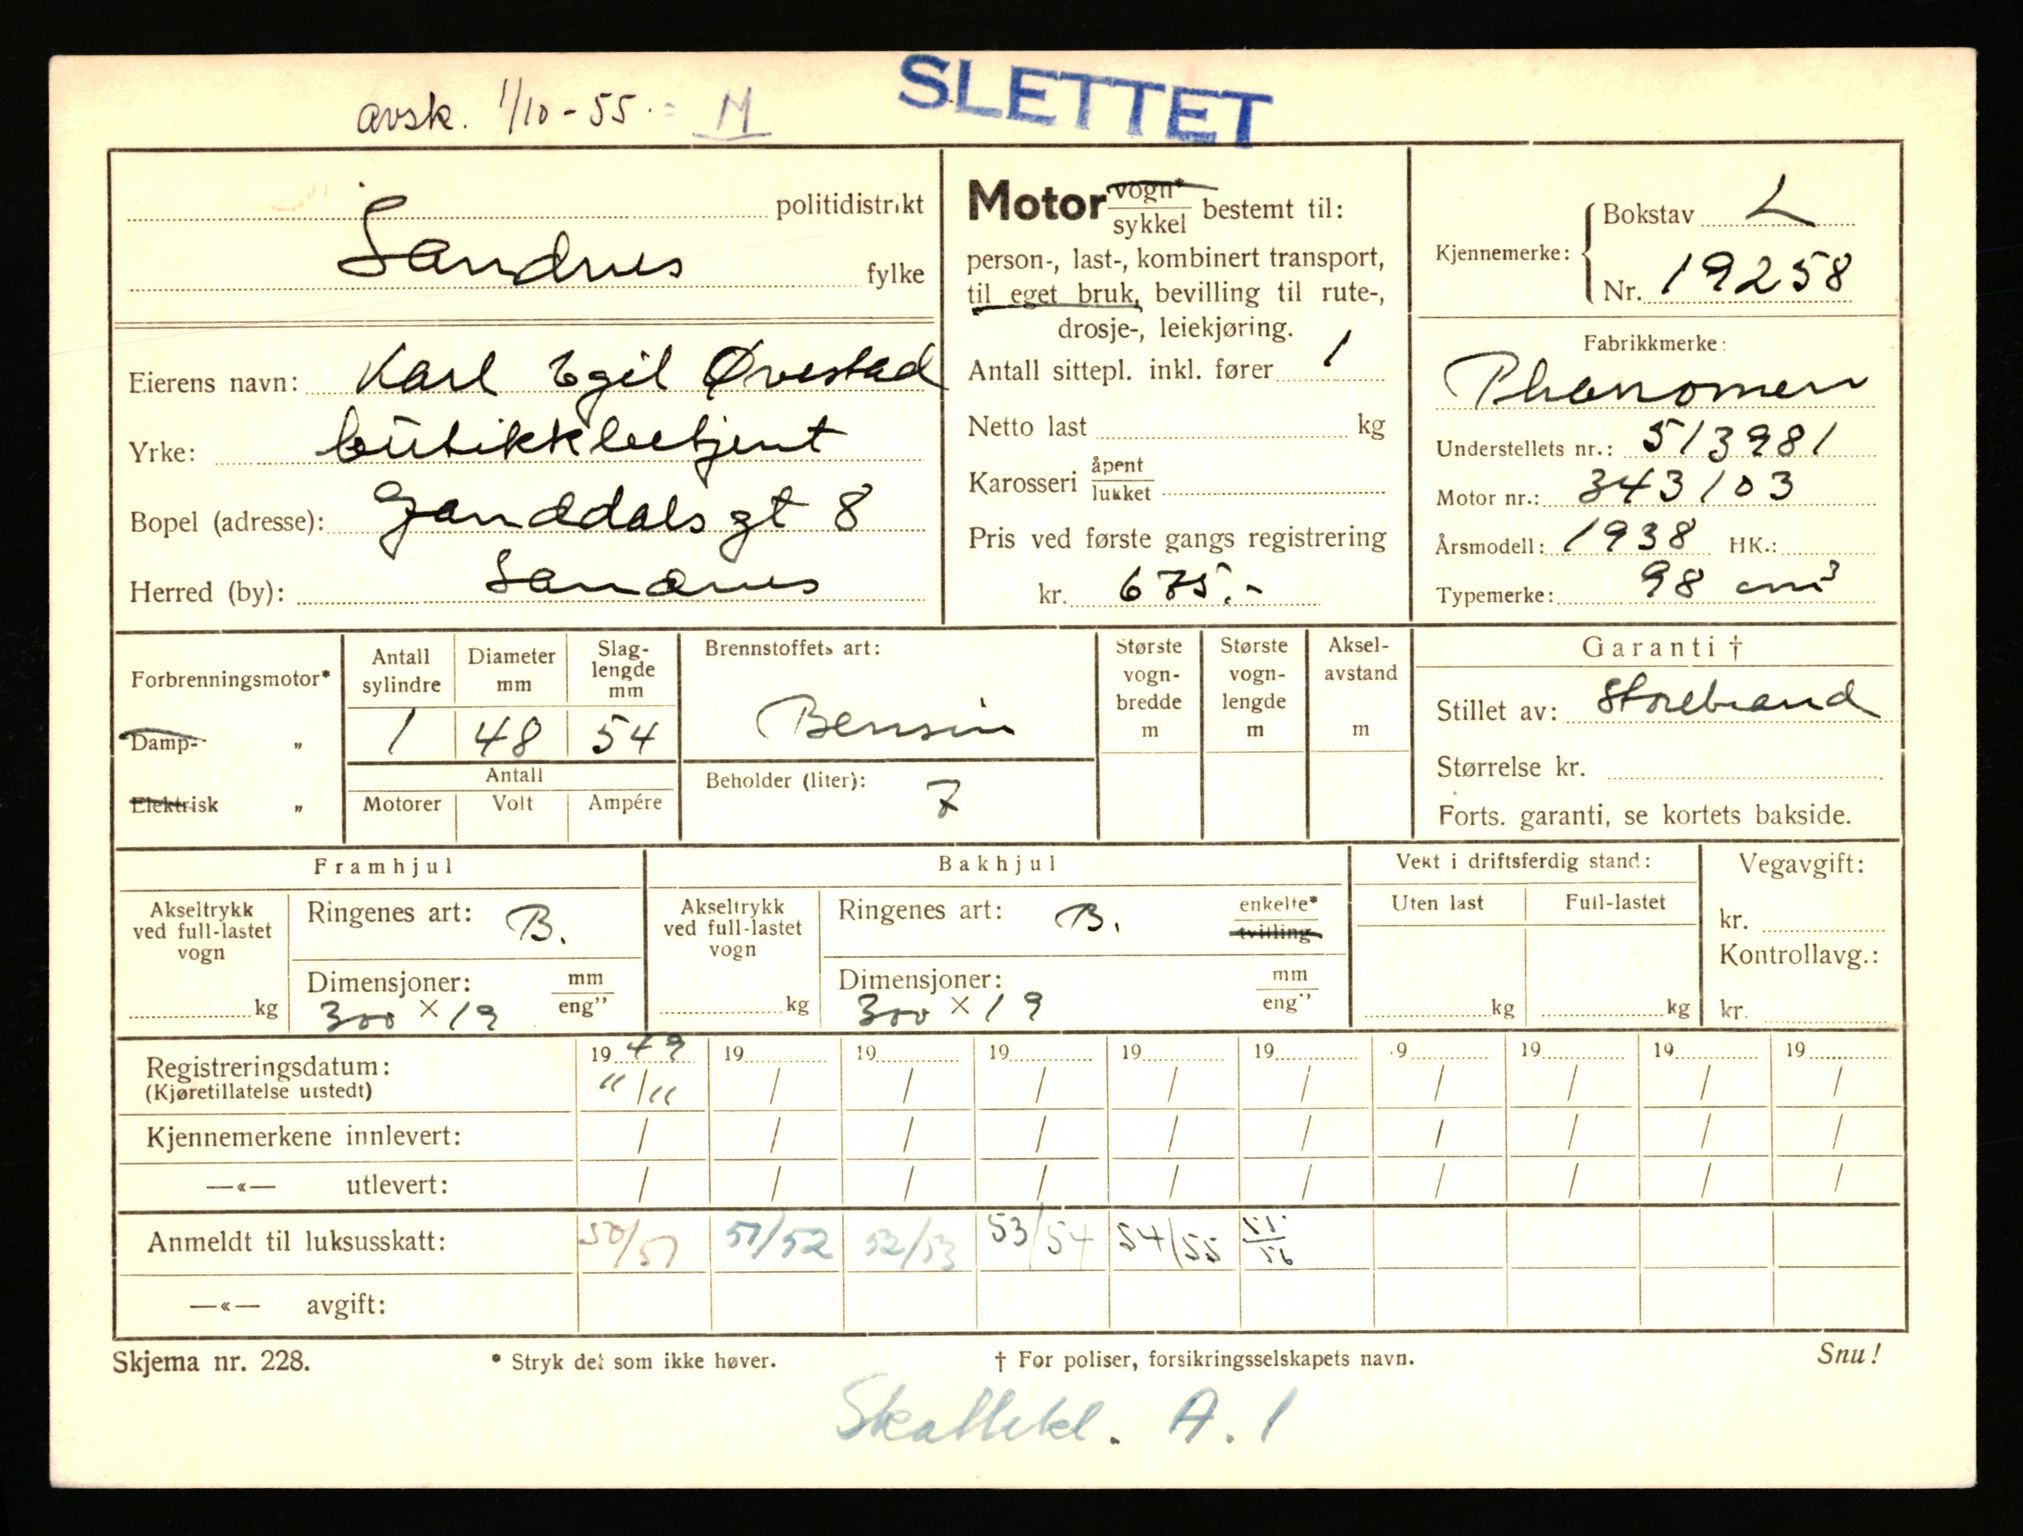 avsk. 1/10-55 = M
SLETTET
politidistrikt
Sandnes fylke
Motor vogn* / sykkel bestemt til:
person-, last-, kombinert transport,
til eget bruk, bevilling til rute-,
drosje-, leiekjøring.
Antall sittepl. inkl. fører 1
Netto last kg
Karosseri åpent / lukket
Pris ved første gangs registrering
kr. 675.-
Kjennemerke: Bokstav L
Nr. 19258
Eierens navn: Karl Egil Øvestad
Yrke: butikkbetjent
Bopel (adresse): Ganddalsgt 8
Herred (by): Sandnes
Fabrikkmerke:
Phänomen
Understellets nr.: 513981
Motor nr.: 343103
Årsmodell: 1938 HK.:
Typemerke: 98 cm³
Forbrenningsmotor*
Damp- „
Elektrisk „
Antall sylindre
Diameter mm
Slag-lengde mm
1 48 54
Antall
Motorer Volt Ampére
Brennstoffets art:
Bensin
Beholder (liter):
7
Største vogn-bredde m
Største vogn-lengde m
Aksel-avstand m
Garanti †
Stillet av: Storebrand
Størrelse kr.
Forts. garanti, se kortets bakside.
Framhjul
Akseltrykk ved full-lastet vogn
kg
Ringenes art: B.
Dimensjoner: mm / eng"
300 × 19
Bakhjul
Akseltrykk ved full-lastet vogn
kg
Ringenes art: B. enkelte* / tvilling
Dimensjoner: mm / eng"
300 × 19
Vekt i driftsferdig stand:
Uten last Full-lastet
kg kg
Vegavgift:
kr.
Kontrollavg.:
kr.
Registreringsdatum: 1949 19 19 19 19 19 19 19 19 19
(Kjøretillatelse utstedt) "/" / / / / / / / / /
Kjennemerkene innlevert: / / / / / / / / / /
—«— utlevert: / / / / / / / / / /
Anmeldt til luksusskatt: 50/51 51/52 52/53 53/54 54/55 55/56
—«— avgift:
Skjema nr. 228. * Stryk det som ikke høver. † For poliser, forsikringsselskapets navn. Snu!
Skattekl. A. 1